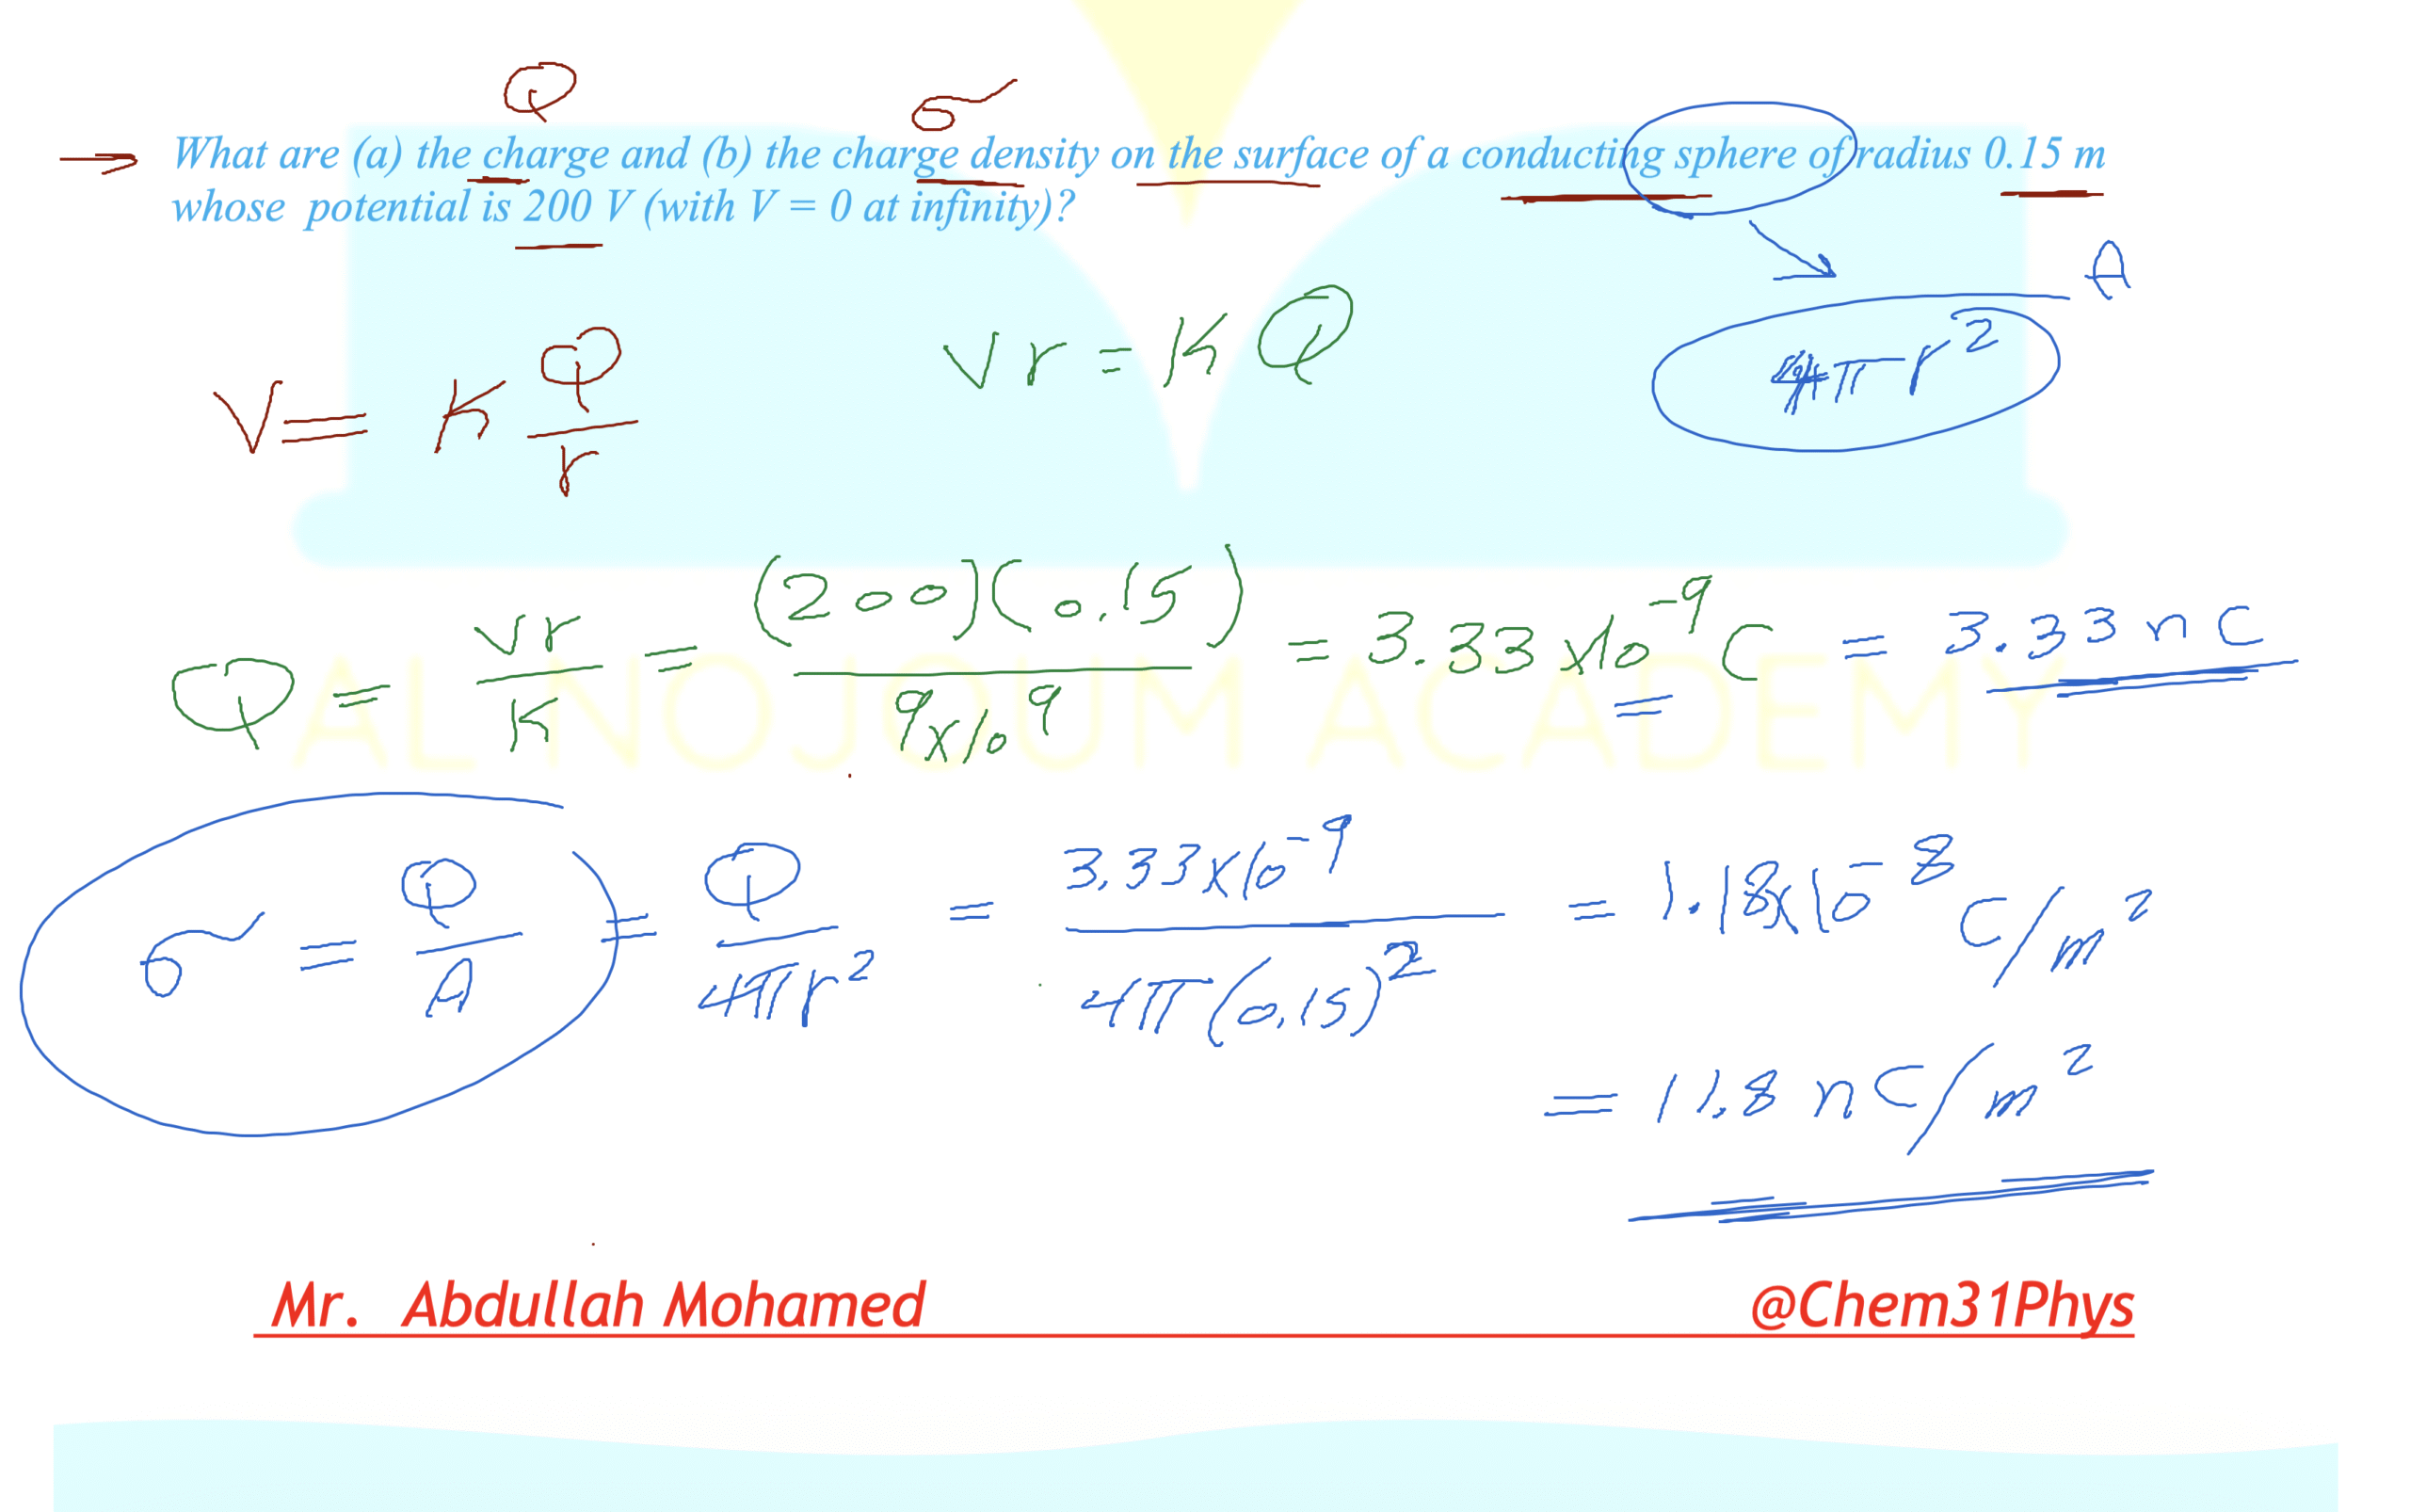 Q σ
What are (a) the charge and (b) the charge density on the surface of a conducting sphere of radius 0.15 m
whose potential is 200 V (with V = 0 at infinity)?
A
4πr²
V = K Q/r
Vr = KQ
Q = Vr/K = (200)(0.15)/9x10⁹ = 3.33x10⁻⁹ C = 3.33 nC
AL NOJOUM ACADEMY
σ = Q/A = Q/4πr² = 3.33x10⁻⁹/4π(0.15)² = 1.18x10⁻⁸ C/m²
= 11.8 nC/m²
Mr. Abdullah Mohamed @Chem31Phys